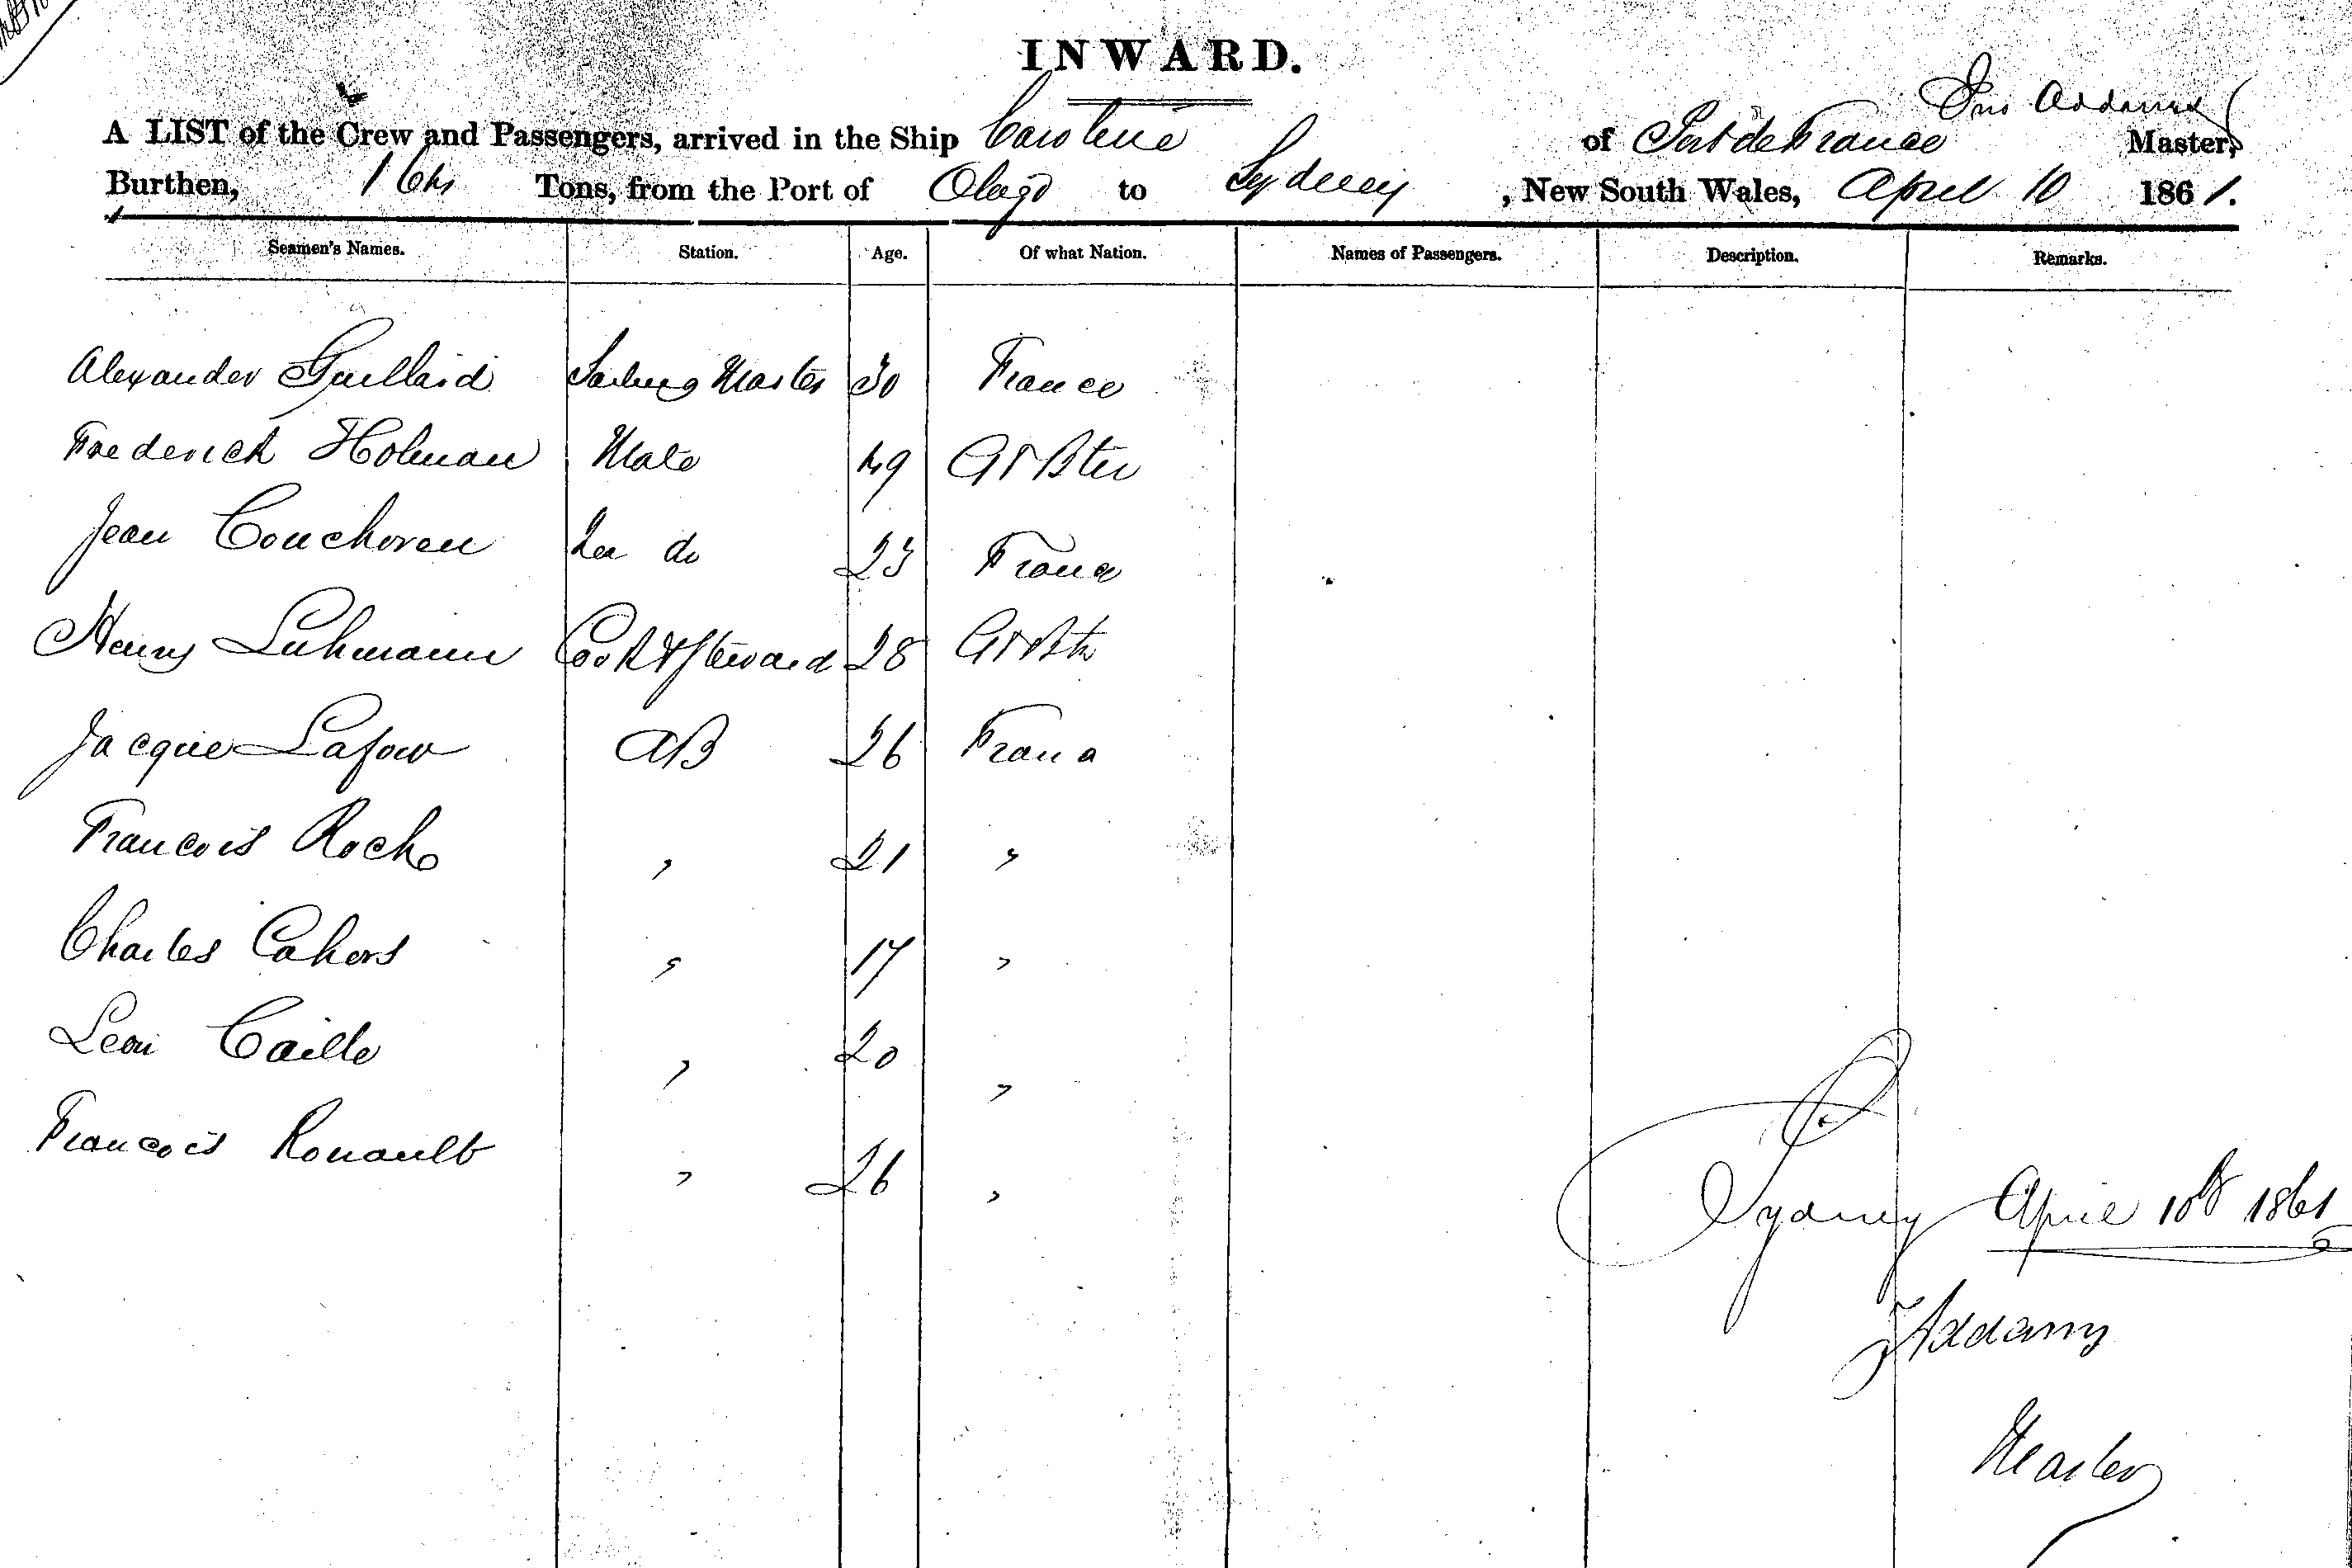 INWARD.
Jno Addams
A LIST of the Crew and Passengers, arrived in the Ship Caroline of Port de France Master,
Burthen, Tons, from the Port of Otago to Sydney, New South Wales, April 10 1861.
Seamen's Names. Station. Age. Of what Nation. Names of Passengers. Description. Remarks.
Alexander Guillard Sailing Master 30 France
Frederick Holman Mate 49 Gt Btn
Jean Couchoven do 23 France
Henry Luhmann Cook & Steward 28 Gt Btn
Jacque Lafow AB 26 France
Francois Roche " 21 "
Charles Cahors " 17 "
Leon Caille " 20 "
Francois Rouault " 26 "
Sydney April 10th 1861
J Addams
Master